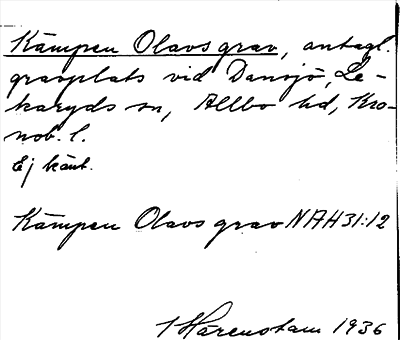 Kämpen Olavs grav, antagl.
gravplats vid Dansjö, Le-
karyds sn, Allbo hd, Kro-
nob. l.
Ej känt.
Kämpen Olavs grav NAH31:12
Härenstam 1936